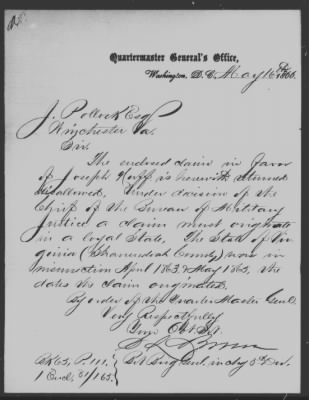 Quartermaster General's Office,
Washington, D. C. May 16th 1866.
J. Pollock Esq
Winchester Va.
Sir.
The enclosed claim in favor
of Joseph is herewith returned
disallowed. Under decision of the
Chief of the Bureau of Military
Justice a claim must originate
in a loyal State. The State of Vir
ginia (Shenandoah County) was in
insurrection April 1863 & May 1865, the
dates the claim originated.
By order of the Quarter Master Genl.
Very Respectfully
Your Obt. Svt.
Bvt Brig Genl. in chg 3d Div.
Bk 65, P. 111.
1 Encl. 31/165.